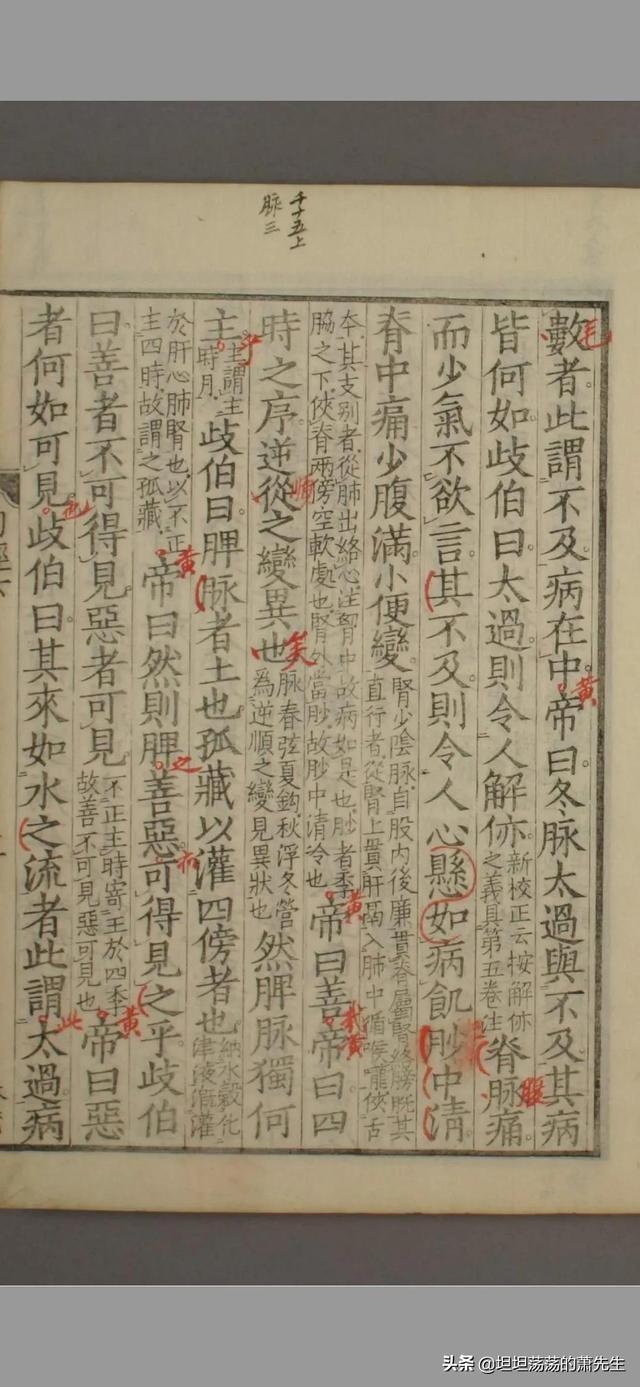 千十五上
脉三
數者此謂不及病在中帝曰冬脉太過與不及其病
皆何如歧伯曰太過則令人解㑊新校正云按解㑊之義具第五卷注脊脉痛
而少氣不欲言其不及則令人心懸如病飢䏚中清
脊中痛少腹滿小便變腎少陰脉自股内後廉貫脊屬腎絡膀胱其直行者從腎上貫肝鬲入肺中循喉嚨俠舌
本其支别者從肺出絡心注胷中故病如是也䏚者季脇之下俠脊兩傍空軟處也腎外當䏚故䏚中清冷也帝曰善帝曰四
時之序逆從之變異也脉春弦夏鈎秋浮冬營為逆順之變見異狀也然脾脉獨何
主主謂主時月歧伯曰脾脉者土也孤藏以灌四傍者也納水穀化津液溉灌
於肝心肺腎也以不正主四時故謂之孤藏帝曰然則脾善惡可得見之乎歧伯
曰善者不可得見惡者可見不正主時寄王於四季故善不可見惡可見也帝曰惡
者何如可見歧伯曰其來如水之流者此謂太過病
毛
黃
腹
黃
黃
矣
乎
黃
之
黃
也
此
头条 @坦坦荡荡的萧先生